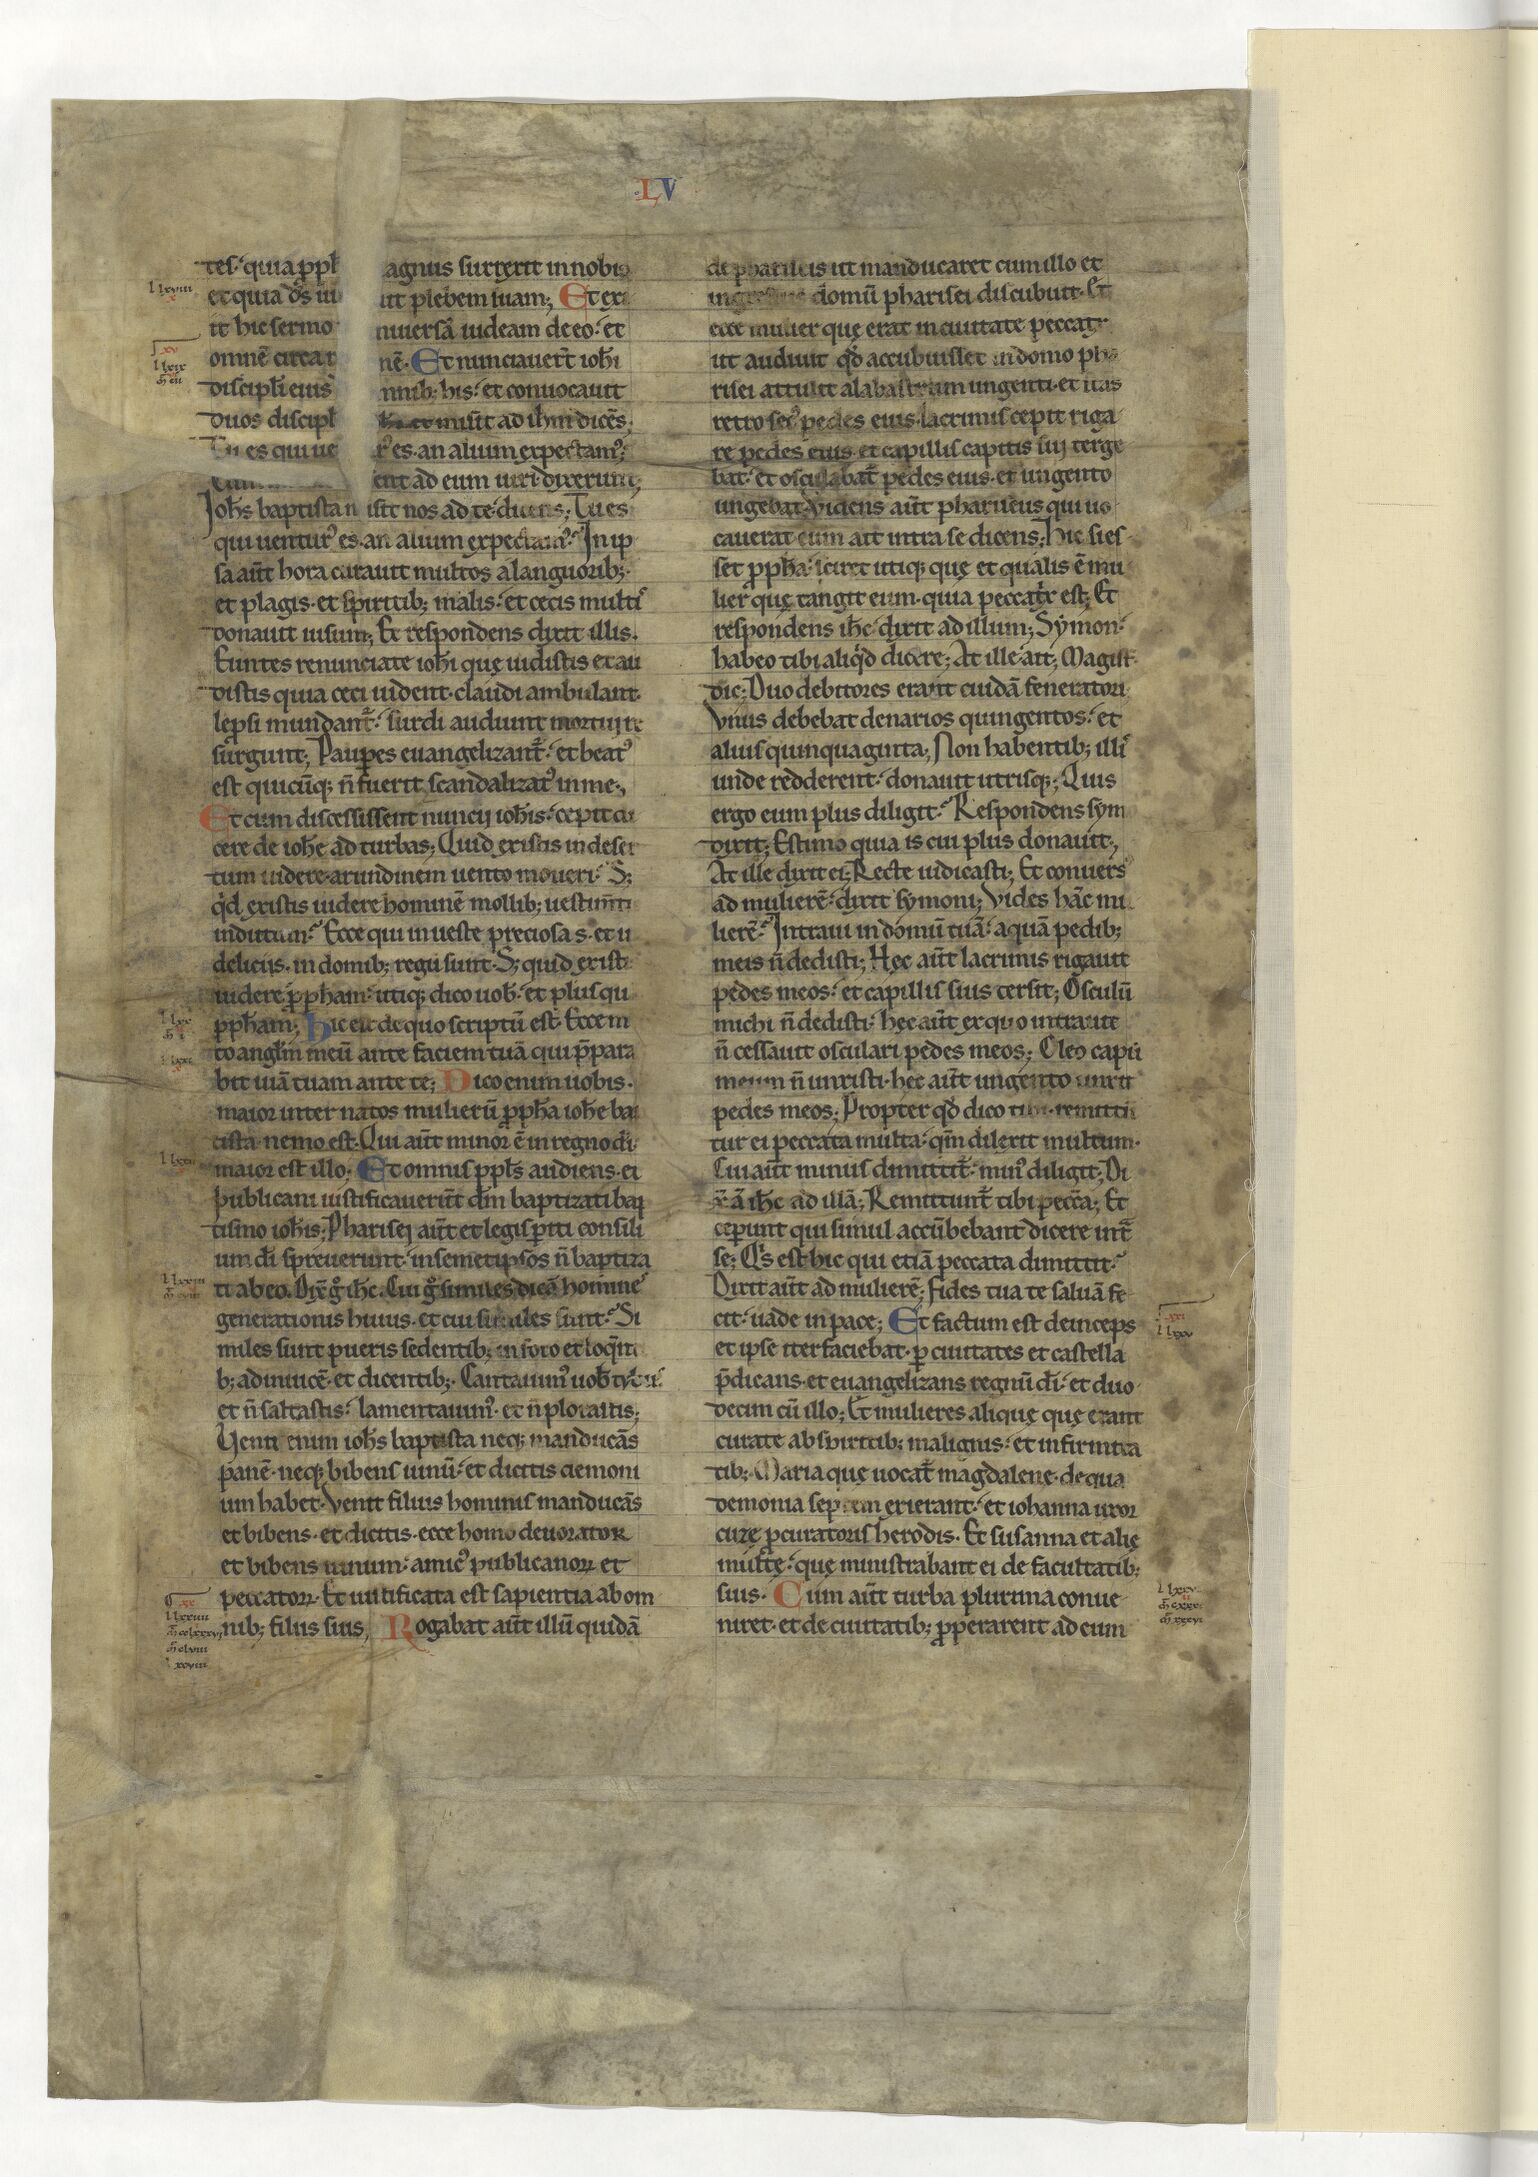 LV
tes· quia ppł agnus surrexit in nobis
et quia ds̄ ui it plebem suam; Et exi
it hic sermo niuersā iudeam de eo· et
omnē circa r nē· Et nunciauerт̄ ioħi
discipłi eius mnib; his· et conuocauit
duos discipł et misit ad iħm dicēs;
Tu es qui ue r̾ es· an alium expectam᾽;
ent ad eum uiri dixerunt;
Joħs baptista m isit nos ad te dicens; Tu es
qui uentur᾽ es· an alium expectam᾽; In ip
sa aūt hora curauit multos a languorib;·
et plagis· et spiritib; malis· et cecis multis
donauit uisum; Et respondens dixit illis.
Euntes renunciate ioħi quę uidistis et au
distis quia ceci uident· claudi ambulant·
leprsi mundant᷑· surdi audiunt mortui re
surgunt; Paupes euangelizant᷑· et beat᾽
est quicūq; n̄ fuerit scandalizat᾽ in me;
Et cum discessissent nuncij ioħis· cepit di
cere de ioħe ad turbas; Quid existis in deser
tum uidere· arundinem uento moueri· S;
qd̄ existis uidere hominē mollib; uestim̄tis
indutum· Ecce qui in ueste preciosa s· et i
delicijs· in domib; regū sunt· S; quid exist
uidere; ppħam· utiq; dico uob̄· et plus qu
ppħam; Hic est de quo scriptū est· Ecce m
to angłm meū ante faciem tuā qui p̄para
bit uiā tuam ante te; Dico enim uobis·
maior inter natos mulierū ppħa ioħe bap
tista nemo est· Qui aūt minor ē in regno di̅
maior est illo· Et omnis ppłs audiens· et
publicani iustificauerūt dm̄ baptizati bap
tismo ioħis; Pharisei aūt et legis piti consili
um di̅ spreuerunt· in semetipsos n̄ baptiza
ti ab eo. Dix̄ g̊ iħc. Cui g̊ similes dicā homine᷒
generationis huius· et cui similes sunt· Si
miles sunt pueris sedentib; in foro et loq̄nti
b; adinuicē· et dicentib;· Cantauim᾽ uob̄ tibiis
et n̄ saltastis· lamentauim᾽ et n̄ plorastis;
Uenit enim ioħs baptista neq; manducās
panē· neq; bibens uinū· et dicitis demoni
um habet· Venit filius hominis manducās
et bibens· et dicitis· ecce homo deuorator
et bibens uinum· amic᾽ publicanoꝝ et
peccatoꝝ· Et iustificata est sapientia ab om
nib; filiis suis; Rogabat aūt illū quidā
de phariseis ut manducaret cum illo et
ingressus domū pharisei discubuit· Et
ecce mulier quę erat in ciuitate peccatr
ut audiuit qd̄ accubuisset in domo pha
risei attulit alabastrum ungenti· et stas
retro sec᾽ pedes eius· lacrimis cepit riga
re pedes eius et capillis capitis sui terge
bat· et osculabat᷑ pedes eius· et ungento
ungebat· Videns aūt phariseus qui uo
cauerat eum ait intra se dicens; Hic si es
set ppħa· sciret utiq; quę et qualis ē mu
lier quę tangit eum· quia peccatx̾ est; Et
respondens iħc dixit ad illum; Symon·
habeo tibi aliqd̄ dicere; At ille ait; Magist̾·
dic; Duo debitores erant cuidā feneratori
Vnus debebat denarios quingentos· et
alius quinquaginta; Non habentib; illis
unde redderent· donauit utrisq;; Quis
ergo eum plus diligit· Respondens sym
dixit; Estimo quia is cui plus donauit;
At ille dixit ei; Recte iudicasti; Et conuers᾽
ad mulierē· dixit symoni; Vides hāc mu
lierē· Intraui in domū tuā· aquā pedib;
meis n̄ dedisti; Hęc aūt lacrimis rigauit
pedes meos· et capillis suis tersit; Osculū
michi n̄ dedisti· hęc aūt ex quo intrauit
n̄ cessauit osculari pedes meos; Oleo capū
meum n̄ unxisti· hęc aūt ungento unxit
pedes meos; Propter qd̄ dico tibi· remittū
tur ei peccata multa· qm̄ dilexit multum·
Cui aūt minus dimittit᷑· min᾽ diligit; Di
x̄ ā iħc ad illā; Remittunt᷑ tibi pecc̄a; Et
ceperunt qui simul accūbebant dicere int᷑
se; Qis est hic qui etiā peccata dimittit·
Dixit aūt ad mulierē; fides tua te saluā fe
cit· uade in pace; Et factum est deinceps
et ipse iter faciebat· p ciuitates et castella
p̄dicans· et euangelizans regnū di̅· et duo
decim cū illo; Et mulieres alique quę erant
curate ab spiritib; malignis· et infirmita
tib; Maria quę uocat᷑ magdalene· de qua
demonia septem exierant· et iohanna uxor
cuzę pcuratoris herodis· Et susanna et alię
multę· quę ministrabant ei de facultatib;
suis· Cum aūt turba plurima conue
niret· et de ciuitatib; pperarent ad eum